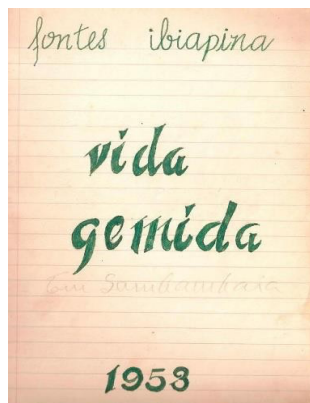 fontes ibiapina
vida
gemida
Em Sambambaia
1958